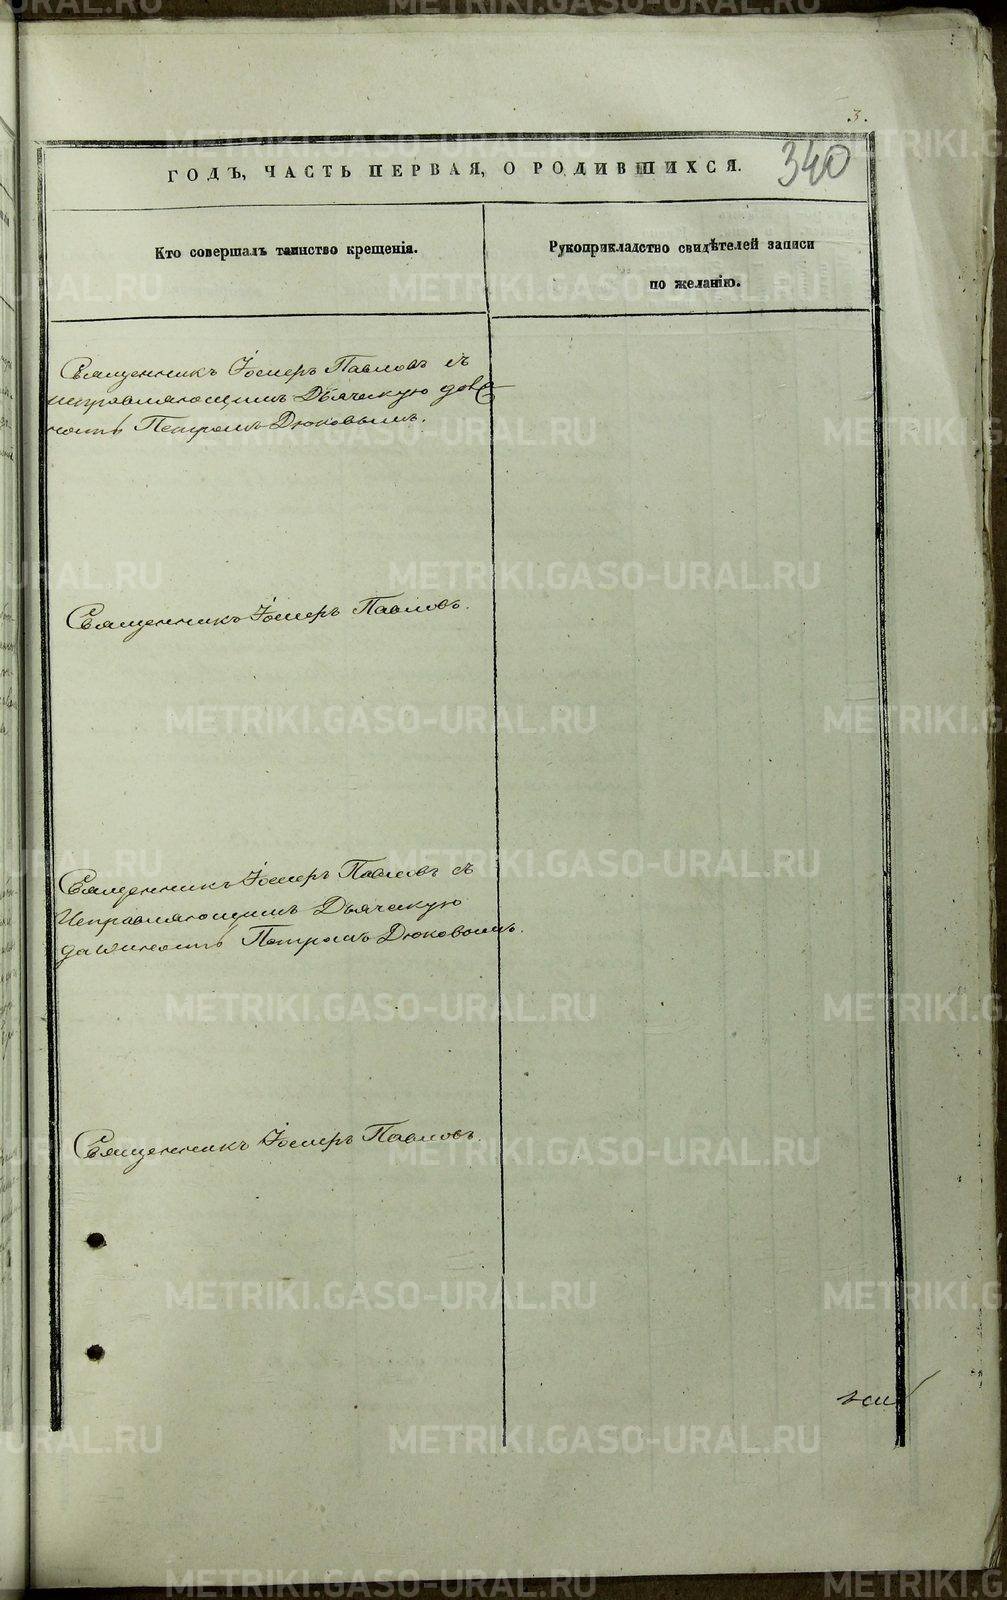 3.
340
ГОДЪ, ЧАСТЬ ПЕРВАЯ, О РОДИВШИХСЯ.
Кто совершалъ таинство крещенія.
Рукоприкладство свидѣтелей записи
по желанію.
Священникъ Іосифъ Павловъ съ
исправляющимъ Дьяческую
ность Петромъ Дюковымъ.
Священникъ Іосифъ Павловъ.
Священникъ Іосифъ Павловъ съ
Исправляющимъ Дьяческую
должность Петромъ Дюковымъ.
Священникъ Іосифъ Павловъ.
METRIKI.GASO-URAL.RU